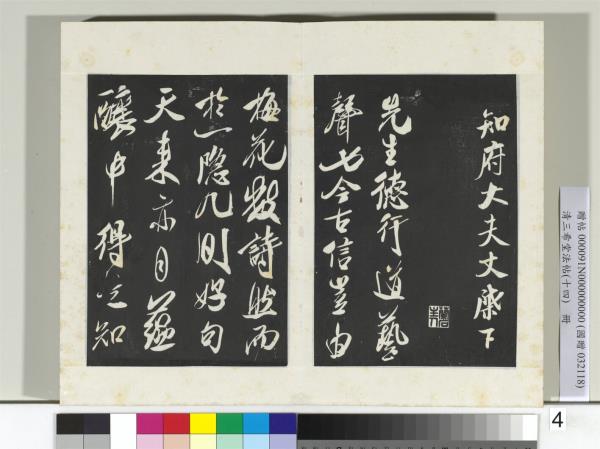 知府大夫丈下
先生德行道藝
聲今古信豈由
梅花數詩然而
於隱几則好句
天來亦自蘊
釀中得之知
贈帖 000091N000000000 (國贈 032118)
清三希堂法帖(十四) 冊
4